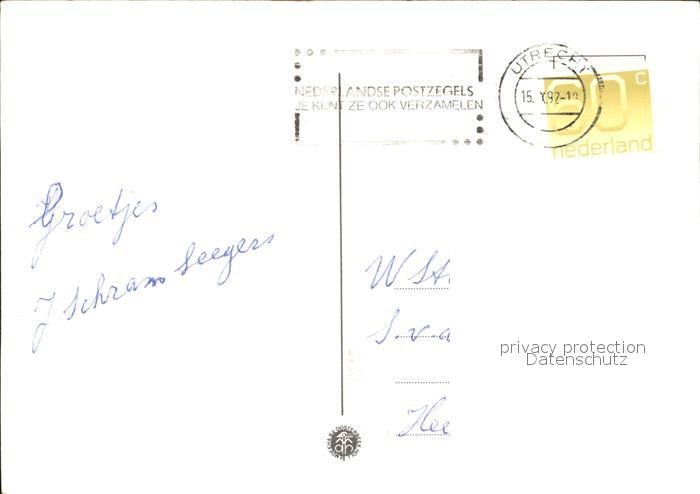 NEDERLANDSE POSTZEGELS
JE KUNT ZE OOK VERZAMELEN
UTRECHT
60 c
nederland
Groetjes
J Schram Seegers
W St
S.v.a
Hee
privacy protection
Datenschutz